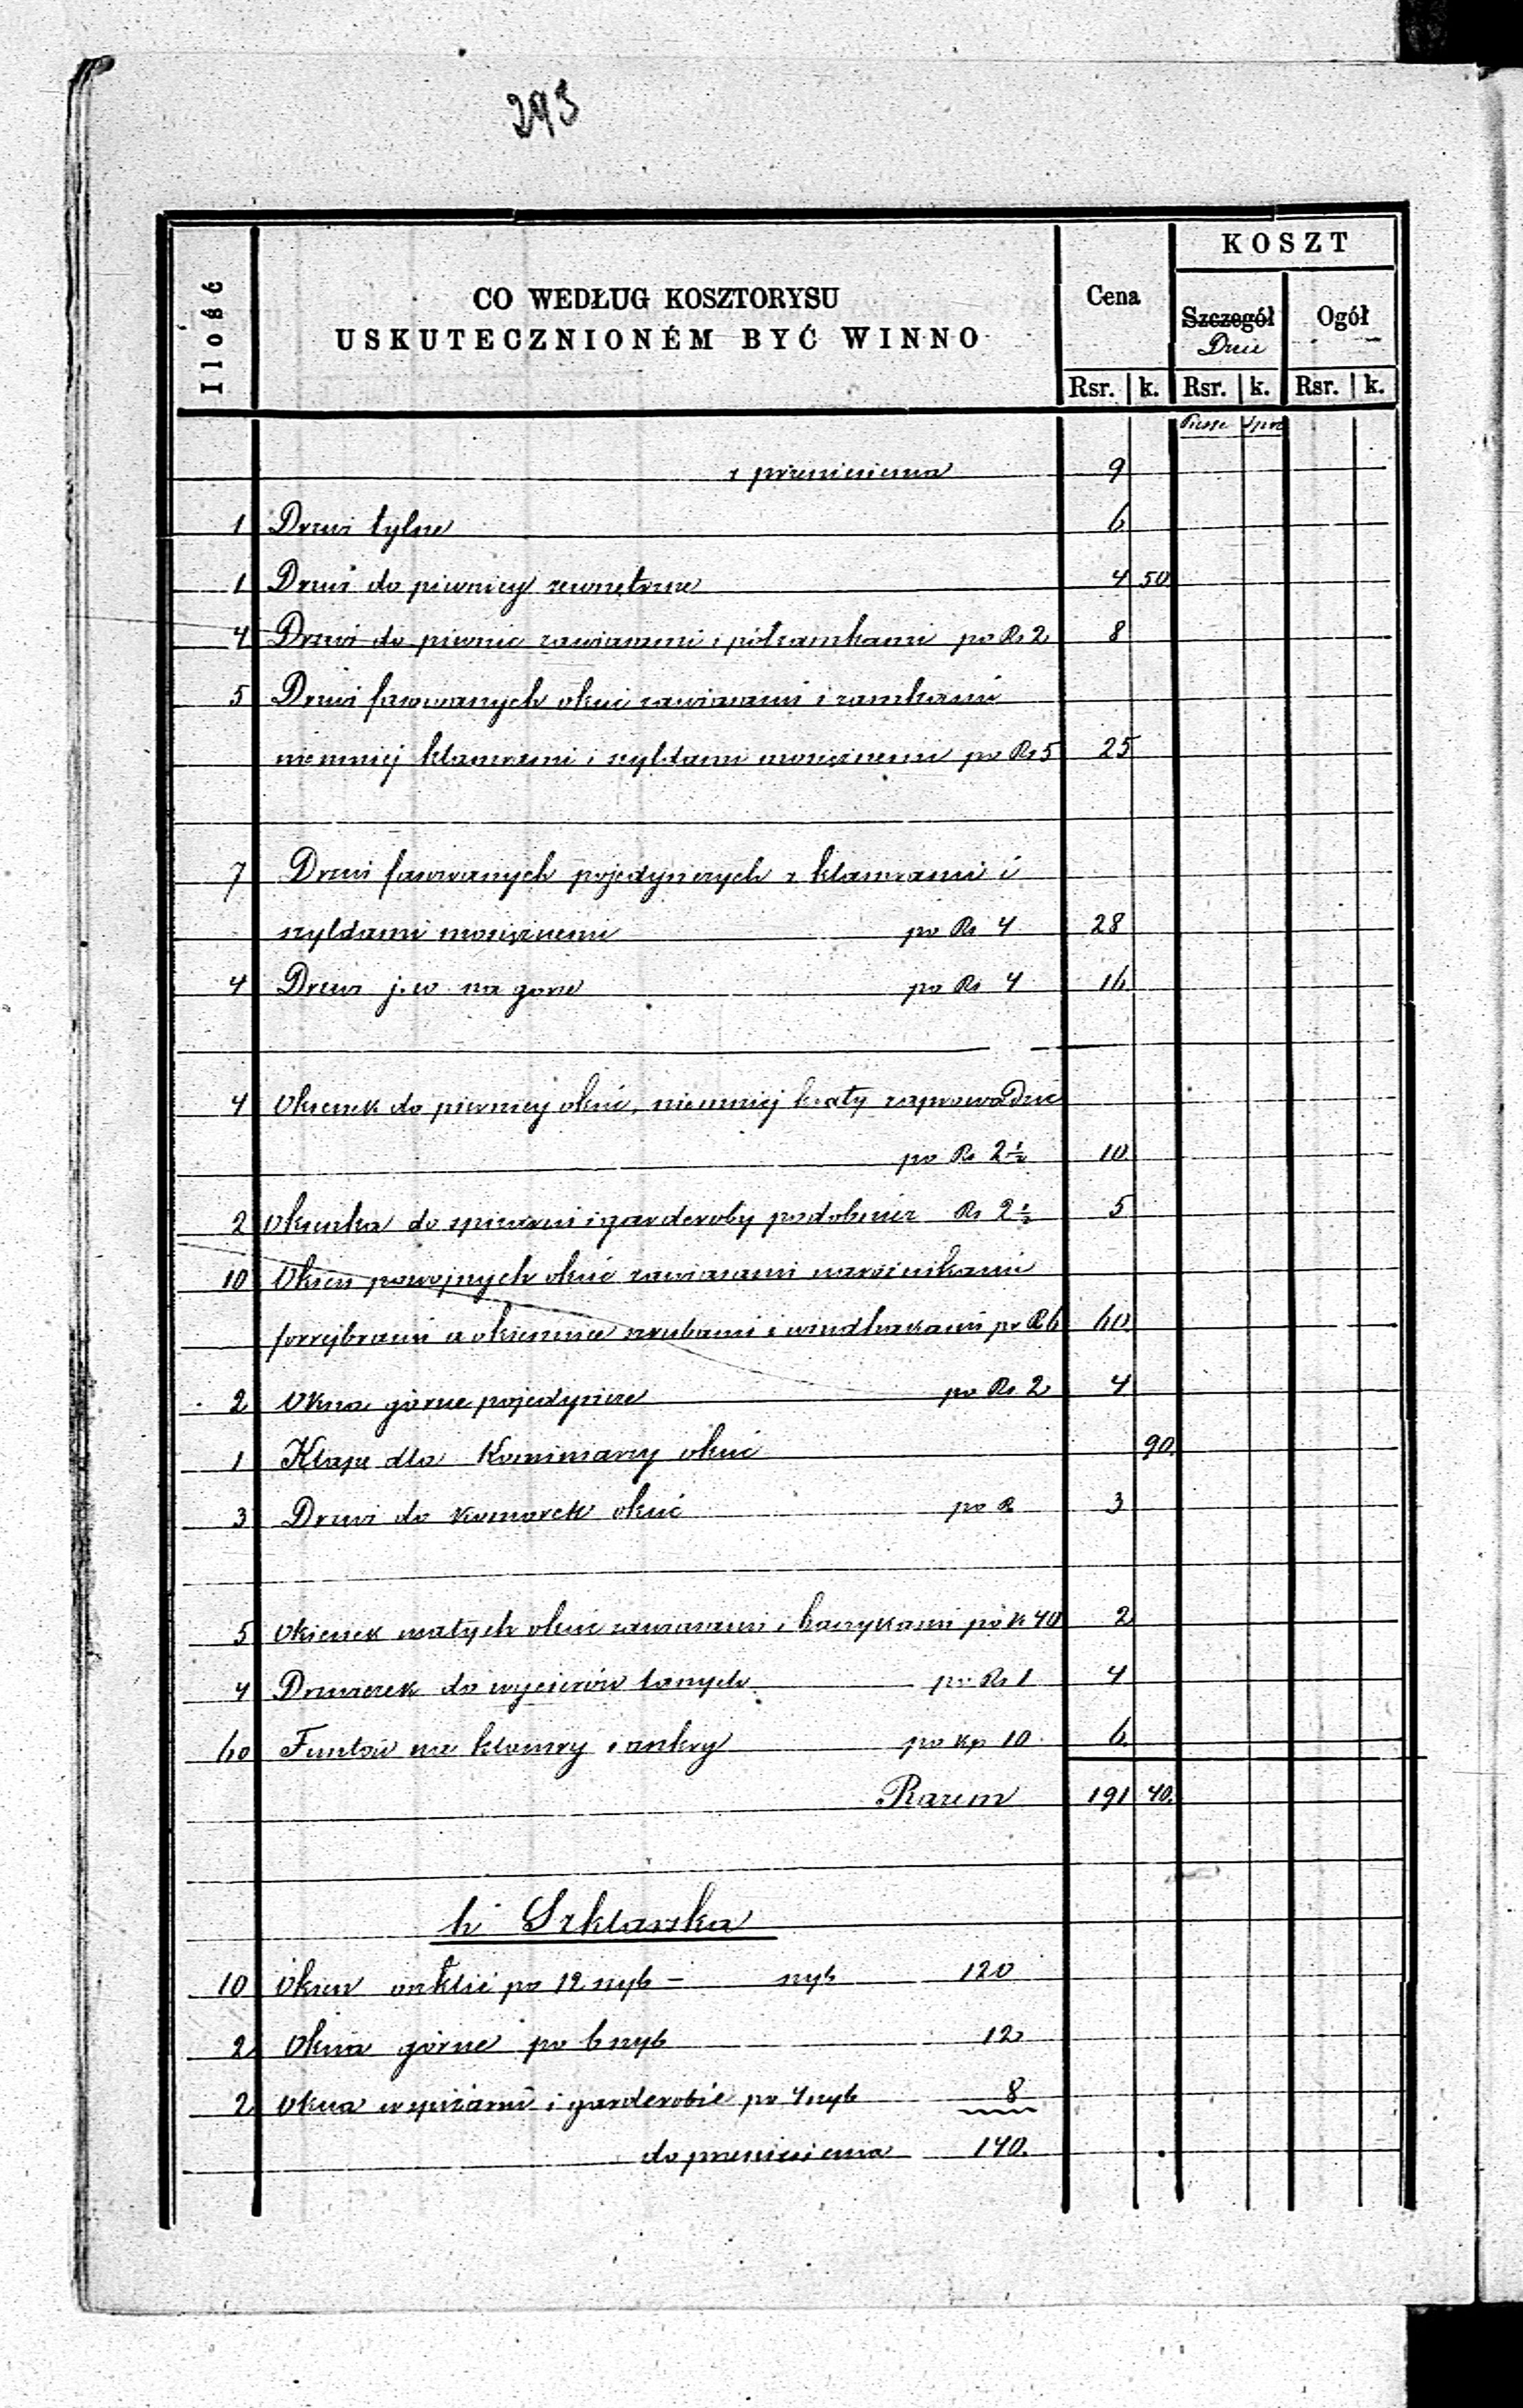 293
Ilość
CO WEDŁUG KOSZTORYSU
USKUTECZNIONÉM BYĆ WINNO
Cena
KOSZT
Szczegół
Dnie
Ogół
Rsr. k. Rsr. k. Rsr. k.
Piesze
z przeniesienia 9
1 Drzwi tylne 6
1 Drzwi do piwnicy zewnętrzne 4 50
4 Drzwi do piwnic zawiasami i półzamkami po Rs 2 8
5 Drzwi fasowanych okuć zawiasami i zamkami
niemniej klamrami i szyldami mosiężnemi po Rs 5 25
7 Drzwi fasowanych pojedynczych z klamrami i
szyldami mosiężnemi po Rs 4 28
4 Drzwi j.w. na górze po Rs 4 16
4 Okienek do piwnicy okuć, niemniej kraty zaprowadzić
po Rs 2 ½ 10
2 Okienka do spiżarni i garderoby podobnież Rs 2 ½ 5
10 Okien powojnych okuć zawiasami narożnikami
forrejbrami a okiennice szrubami i windhakami po R 6 60
2 Okna górne pojedyncze po Rs 2 4
1 Klapę dla Kominiarzy okuć 90
3 Drzwi do komórek okuć po R 3
5 Okienek małych okuć zawiasami i haczykami po k 40 2
4 Drzwiczek do wycierów lanych po Rs 1 4
60 Funtów na klamry i ankry po kp 10 6
Razem 191 40
h Szklarska
10 Okien oszklić po 12 szyb – szyb 120
2 Okna górne po 6 szyb 12
2 Okna w spiżarni i garderobie po 4 szyb 8
do przeniesienia 140